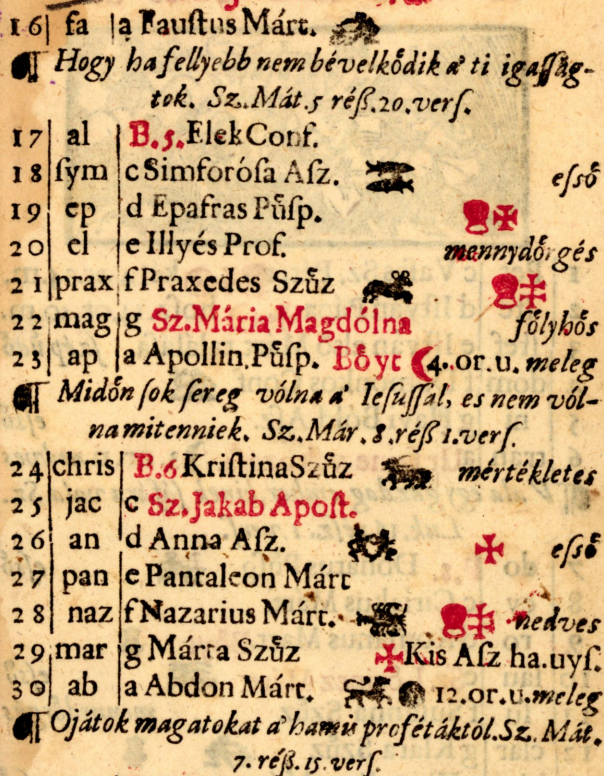 16 fa a Fauſtus Márt.
Hogy ha fellyebb nem bévelkődik a' ti igaſſág-
tok. Sz. Mát. 5 réß. 20. verſ.
17 al B. 5. Elek Conf.
18 ſym c Simforóſa Aſz. eſső
19 ep d Epafras Pu̇ſp.
20 el e Illyés Prof. mennydőrgés
21 prax f Praxedes Szu̇z
22 mag g Sz. Mária Magdólna fólyhós
23 ap a Apollin. Pu̇ſp. Bőyt 4. or. u. meleg
Midőn ſok ſereg vólna a' Ieſuſſal, es nem vól-
na mit enniek. Sz. Már. 8. réß 1. verſ.
24 chris B. 6 Kriſtina Szu̇z mértékletes
25 jac c Sz. Jakab Apoſt.
26 an d Anna Aſz. eſső
27 pan e Pantaleon Márt
28 naz f Nazarius Márt. nedves
29 mar g Márta Szu̇z Kis Aſz ha. uyſ.
30 ab a Abdon Márt. 12. or. u. meleg
Ojátok magatokat a' hamis profétáktól. Sz. Mát.
7. réß. 15. verſ.